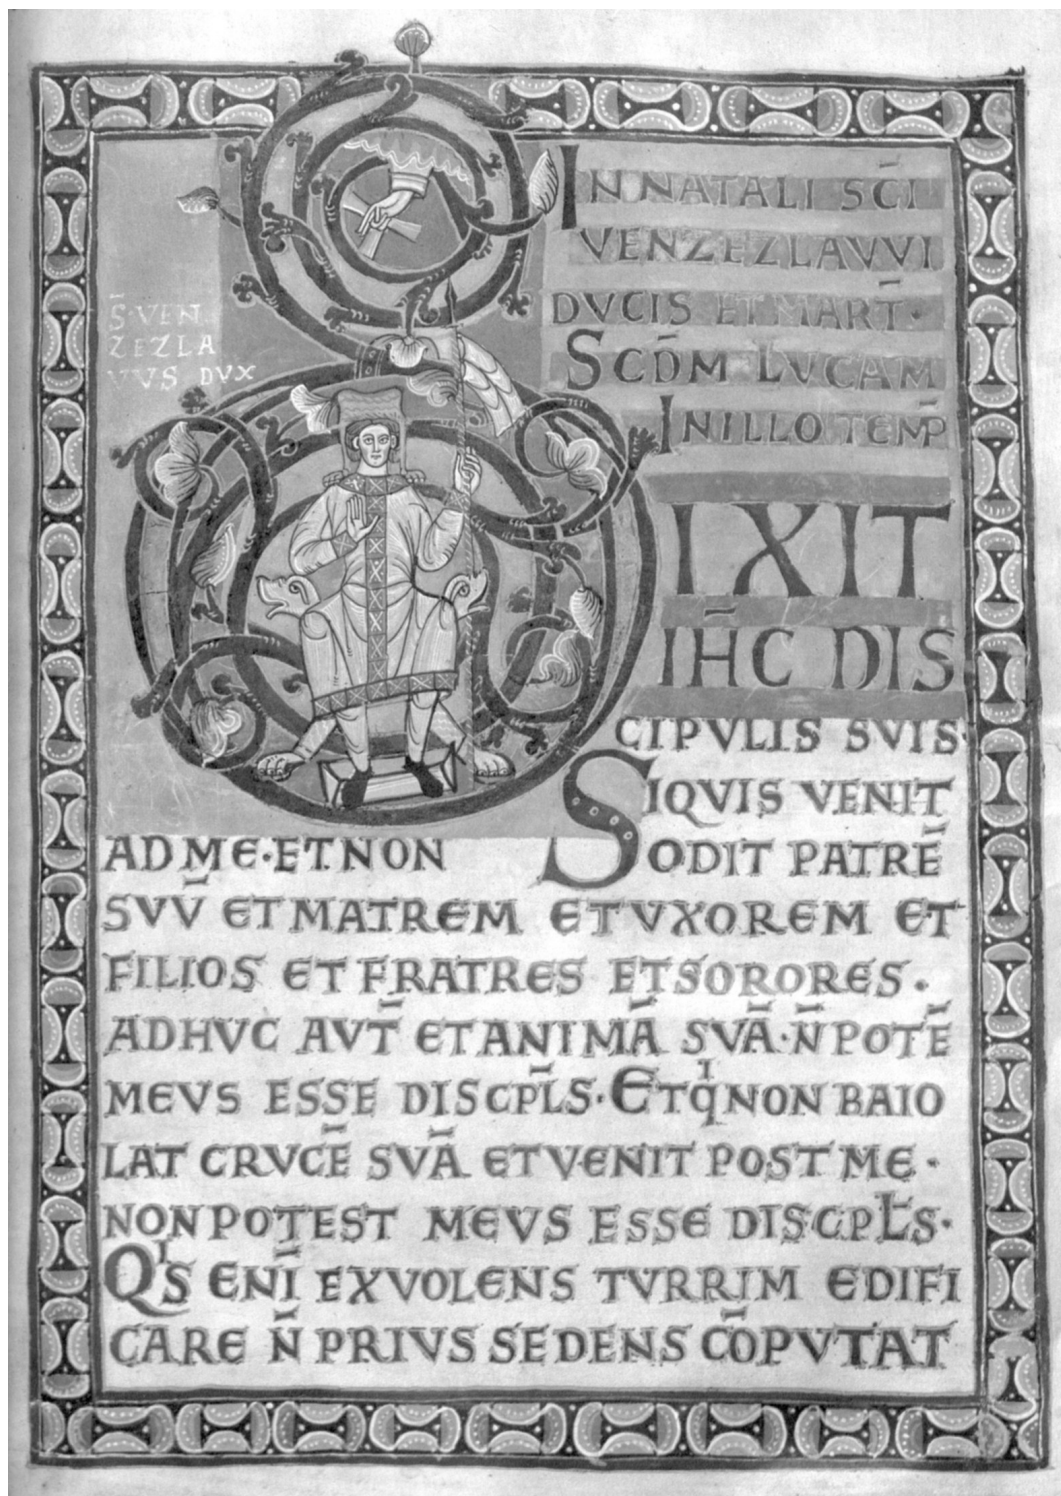 IN NATALI SC̄I
VENZEZLAVVI
DVCIS ET MART̄·
SCD̄M LVCAM
IN ILLO TEMP̄
S̄·VEN
ZEZLA
VVS DVX
IXIT
IH̄C DIS
CIPVLIS SVIS·
SIQVIS VENIT
AD ME·ET NON ODIT PATRĒ
SVV̄ ET MATREM ET VXOREM ET
FILIOS ET FRATRES ET SORORES·
ADHVC AVT̄ ET ANIMĀ SVĀ·N̄ POTĒ
MEVS ESSE DISCPL̄S·ET qͥ NON BAIO
LAT CRVCĒ SVĀ ET VENIT POST ME·
NON POTEST MEVS ESSE DISCPL̄S·
QͥS ENĪ EX VOLENS TVRRIM EDIFI
CARE N̄ PRIVS SEDENS CŌPVTAT